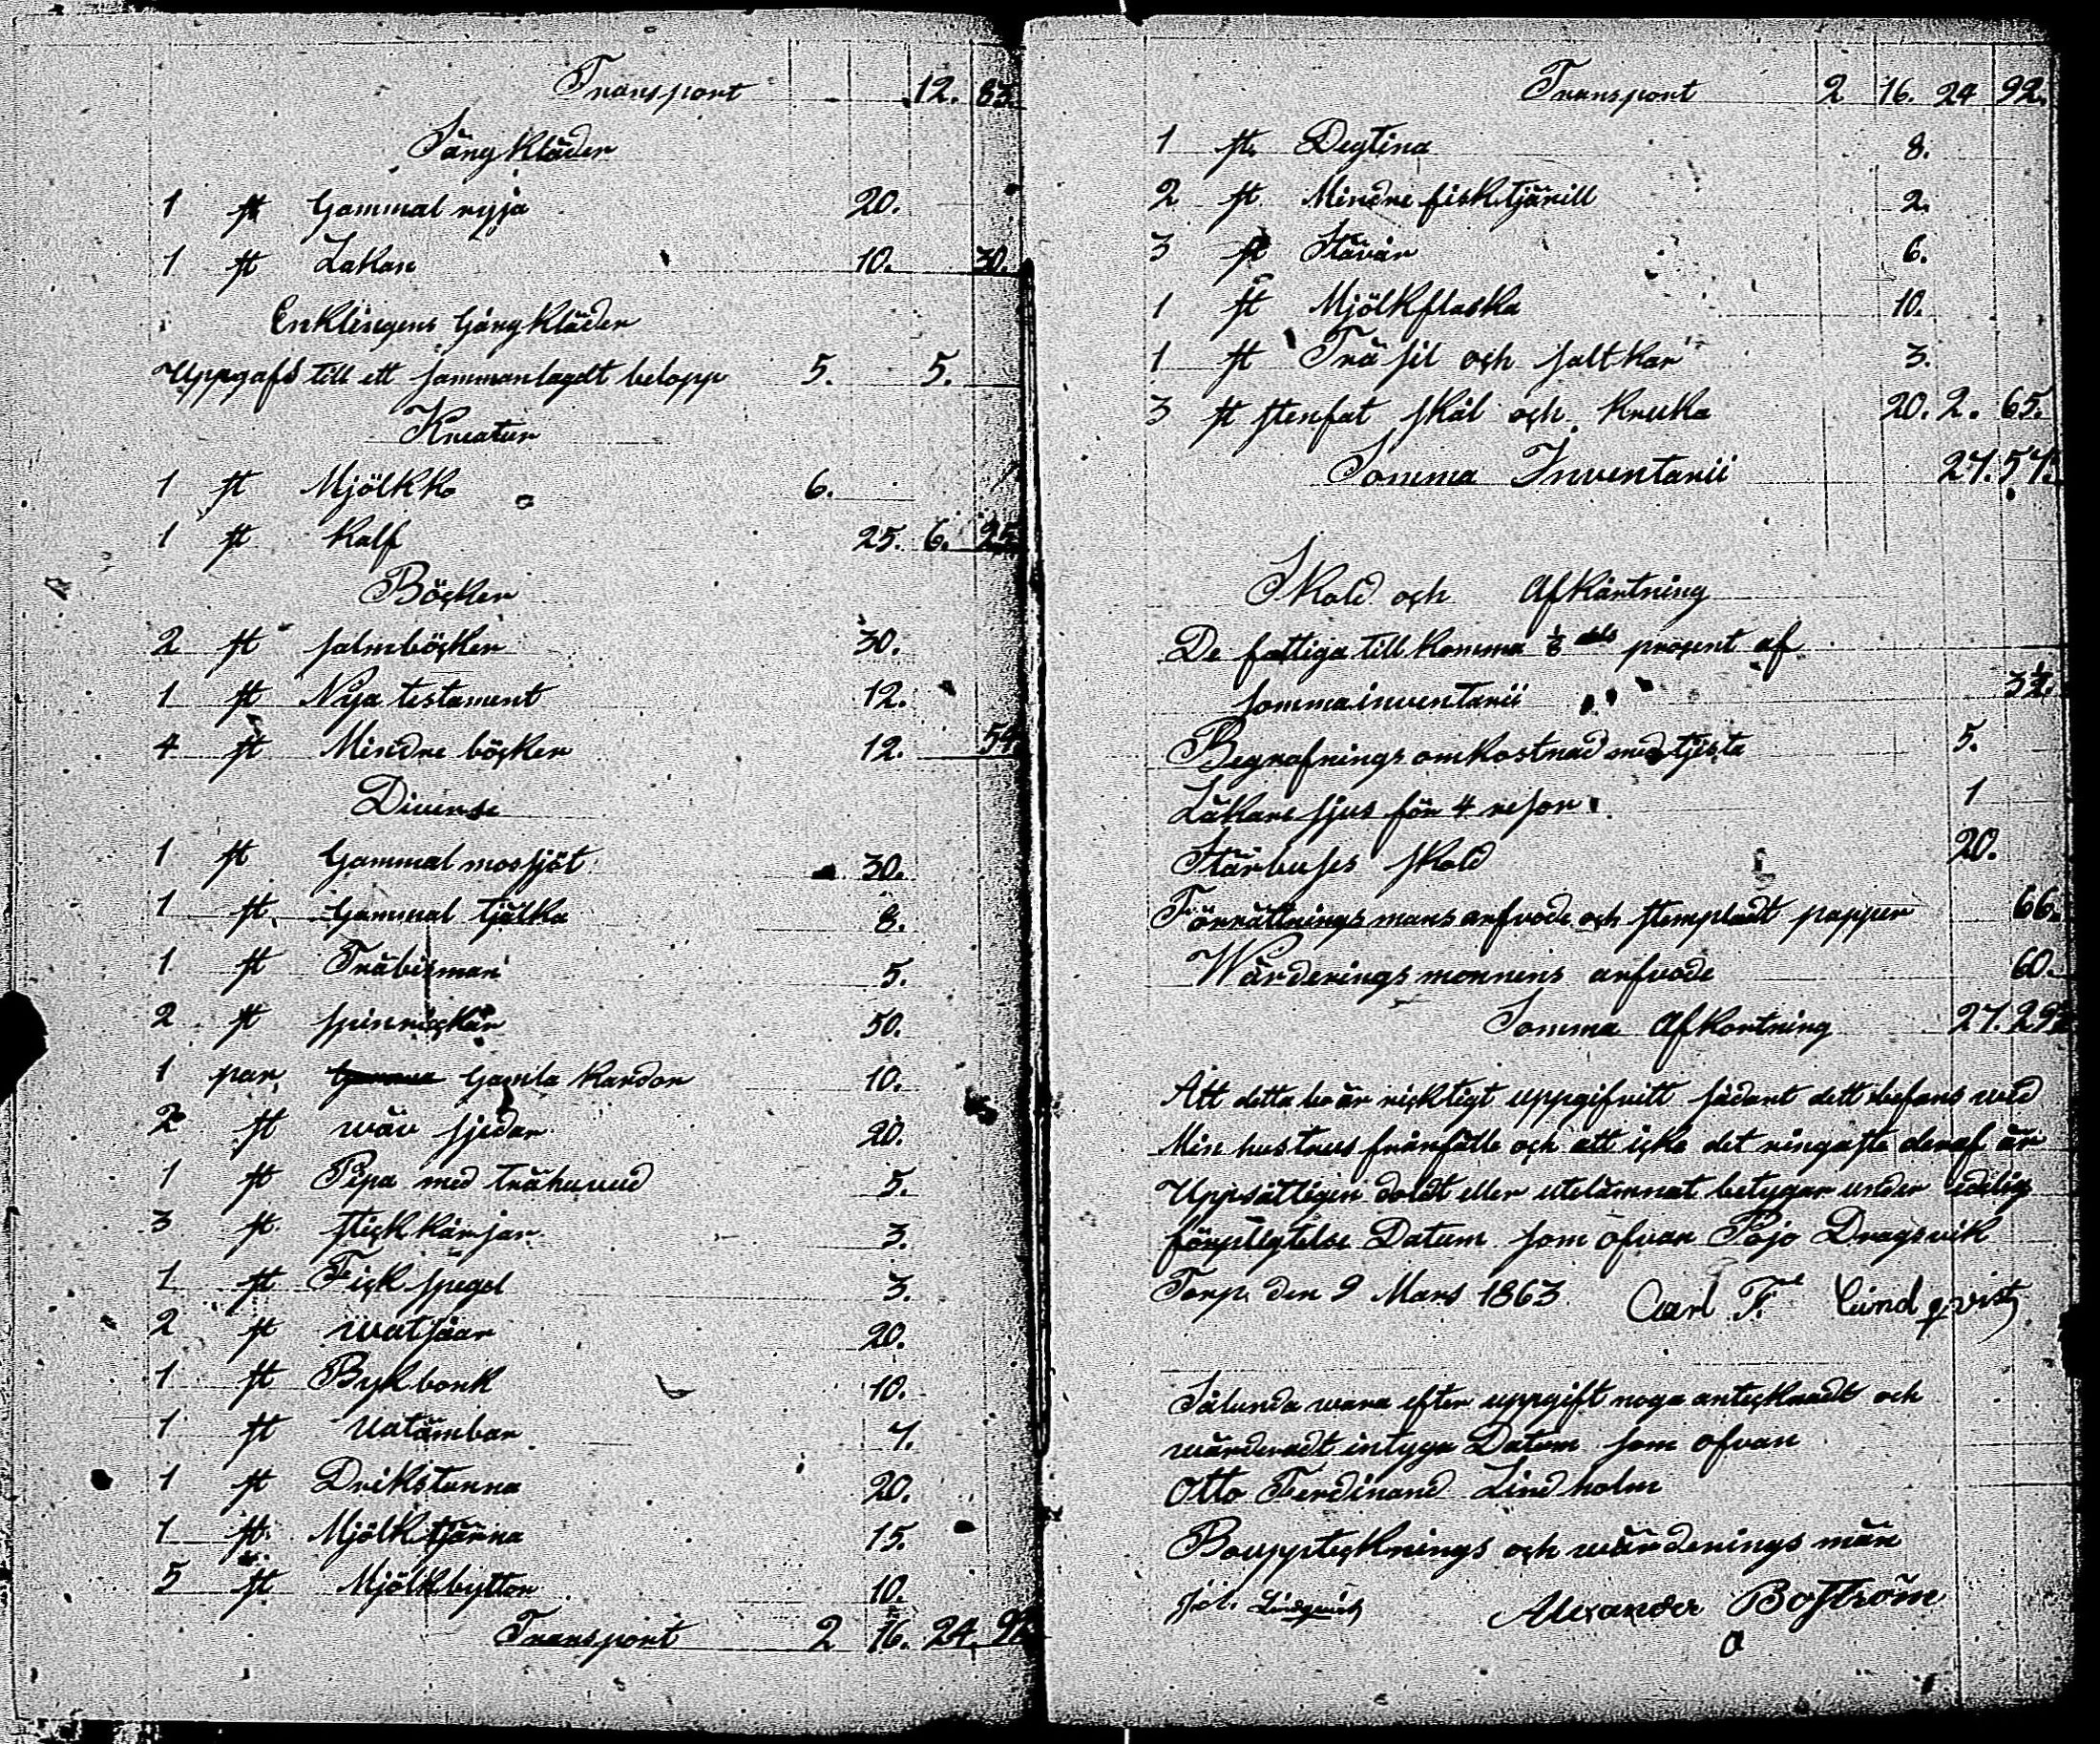 Transport 12. 83.
Sängkläder
1 st Gammal ryja 20.
1 st Lakan 10. 30.
Enklingens Gångkläder
Uppgafs till ett sammanlagdt belopp 5. 5.
Kreatur
1 st Mjölkko 6.
1 st Kalf 25. 6. 25
Böcker
2 st salmböcker 30.
1 st Nya testament 12.
4 st Mindre böcker 12. 54
Diverse
1 st Gammal mossjöt 30.
1 st Gammal tjälka 8.
1 st Träbisman 5.
2 st spinråckar 50.
1 par Gamla kardor 10.
2 st wäv sjedar 20.
1 st Pipa med trähuvud 5.
3 st stickkårjar 3.
1 st Fick spegel 3.
2 st watsåar 20.
1 st Bykbonk 10.
1 st Vatämbar 7.
1 st Drikstunna 20.
1 st Mjölktjärna 15.
5 st Mjölkbyttor 10.
Transport 2 16. 24. 92
Transport 2 16. 24 92.
1 st. Degtina 8.
2 st Mindre fisktjärill 2.
3 st Stävar 6.
1 st Mjölkflaska 10.
1 st Trä sil och saltkar 3.
3 st stenfat skål och kruka 20. 2. 65.
Somma Inventarii 27. 57.
Skold och Afkårtning
De fattiga tillkomma ⅛ dels procent af
sommainventarii 3½.
Begrafnings omkostnad med tjista 5.
Läkare sjus för 4 resor 1
Stärbuses skold 20.
Förrättnings mans arfvode och stempladt papper 66.
Wärderings monnens arfvode 60.
Somma Afkortning 27. 29½
Att detta bo är ricktigt uppgifvitt sådant dett befans wid
Min hustrus frånfälle och att icke det ringaste deraf är
Uppsåttligen doldt eller utelämnat betygar under edelig
förpligtelse Datum som ofvan Pojo Dragsvik
Torp. den 9 Mars 1863 Carl F. Lindqvist
Sålunda wara efter uppgift noga antecknadt och
wärderadt intyga Datum som ofvan
Otto Ferdinand Lindholm
Bouppteknings och wärderings män
Joh. Lindqvist Alexander Boström